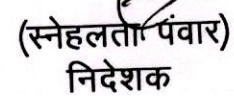 (स्नेहलता पंवार)
निदेशक